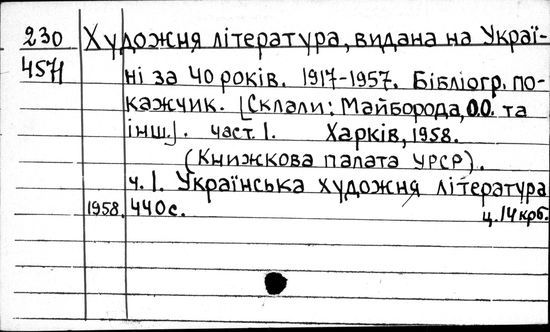 230 Художня література, видана на Украї-
4571 ні за 40 років. 1917-1957. Бібліогр. по-
кажчик. [Склали: Майборода, О.О. та
інш]. част. 1. Харків, 1958.
(Книжкова палата УРСР).
ч. 1. Українська художня література
1958. 440 с. ц. 14 крб.